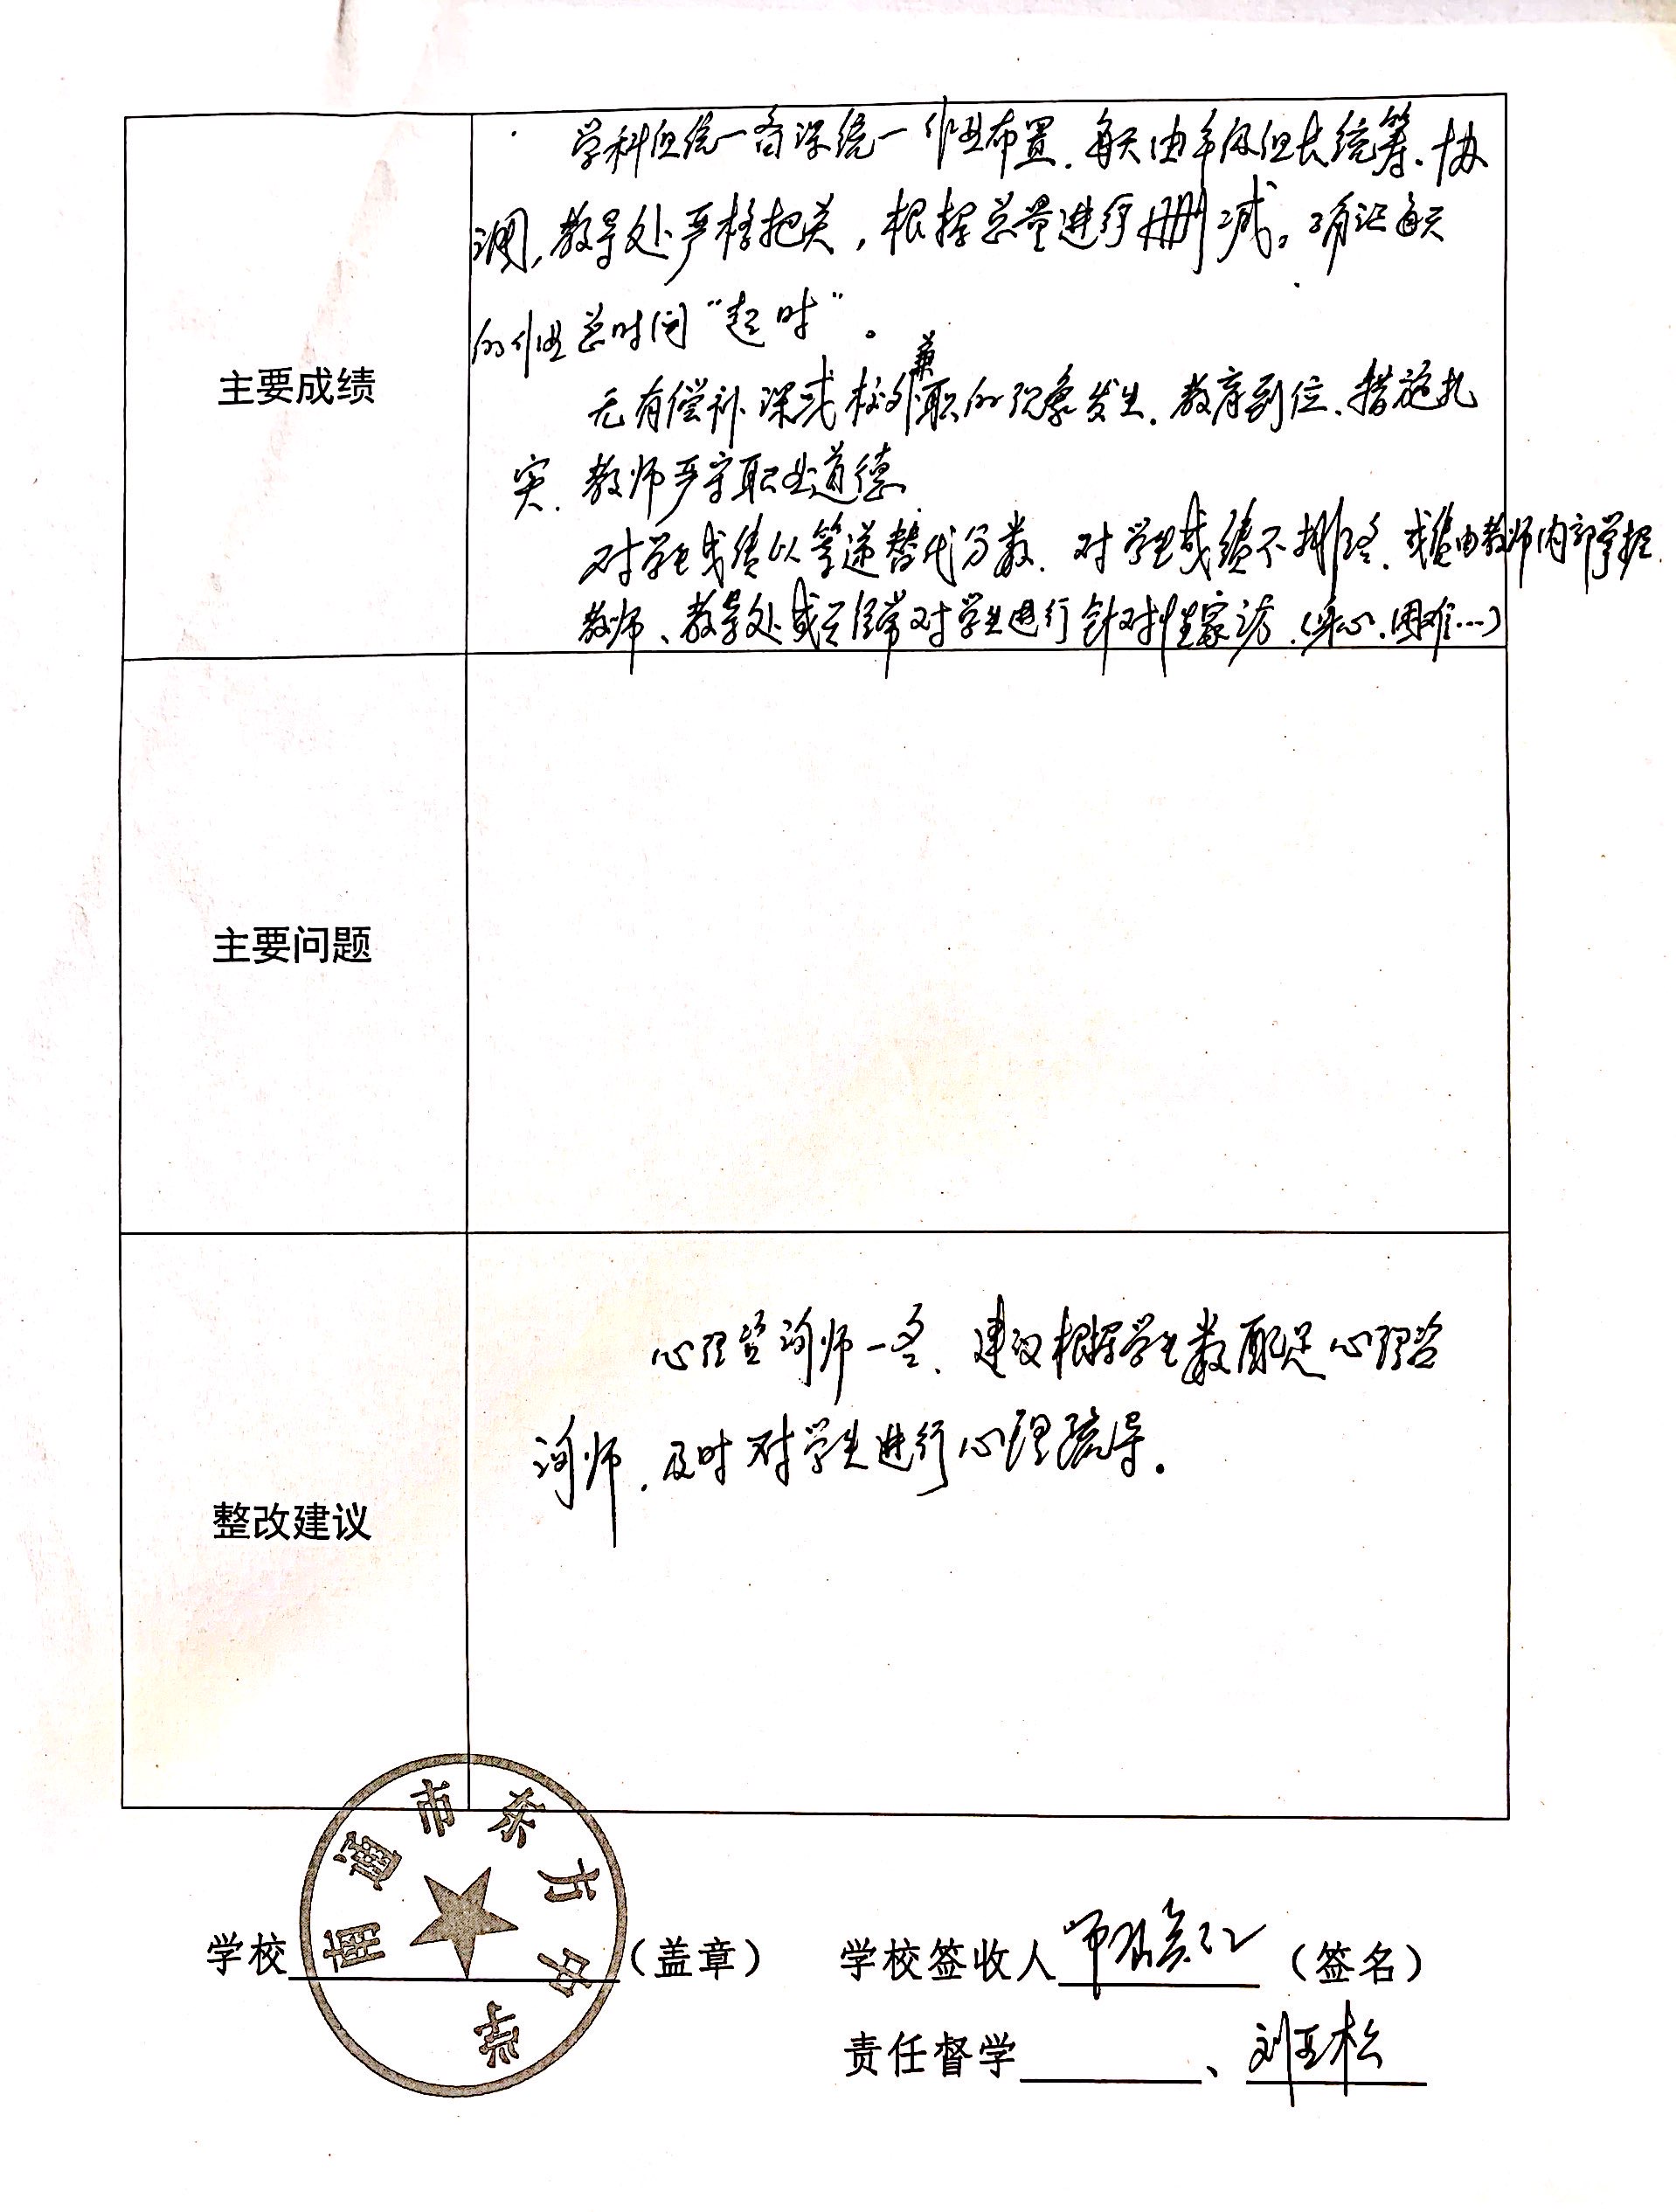 学科组统一备课统一作业布置.每天由年级组长统筹.协
调,教导处严格把关,根据总量进行删减。确认每天
的作业总时间“超时”。
无有偿补课或校外兼职的现象发生.教育到位、措施扎
实.教师严守职业道德
对学生成绩以等递替代分数.对学生成绩不排名.成绩由教师内部掌握.
教师、教导处成员经常对学生进行针对性家访.(身心.困难…)
主要成绩
主要问题
心理咨询师一名、建议根据学生数配足心理咨
询师.及时对学生进行心理疏导.
整改建议
南通市东方中学
学校(盖章) 学校签收人(签名)
责任督学、刘玉松